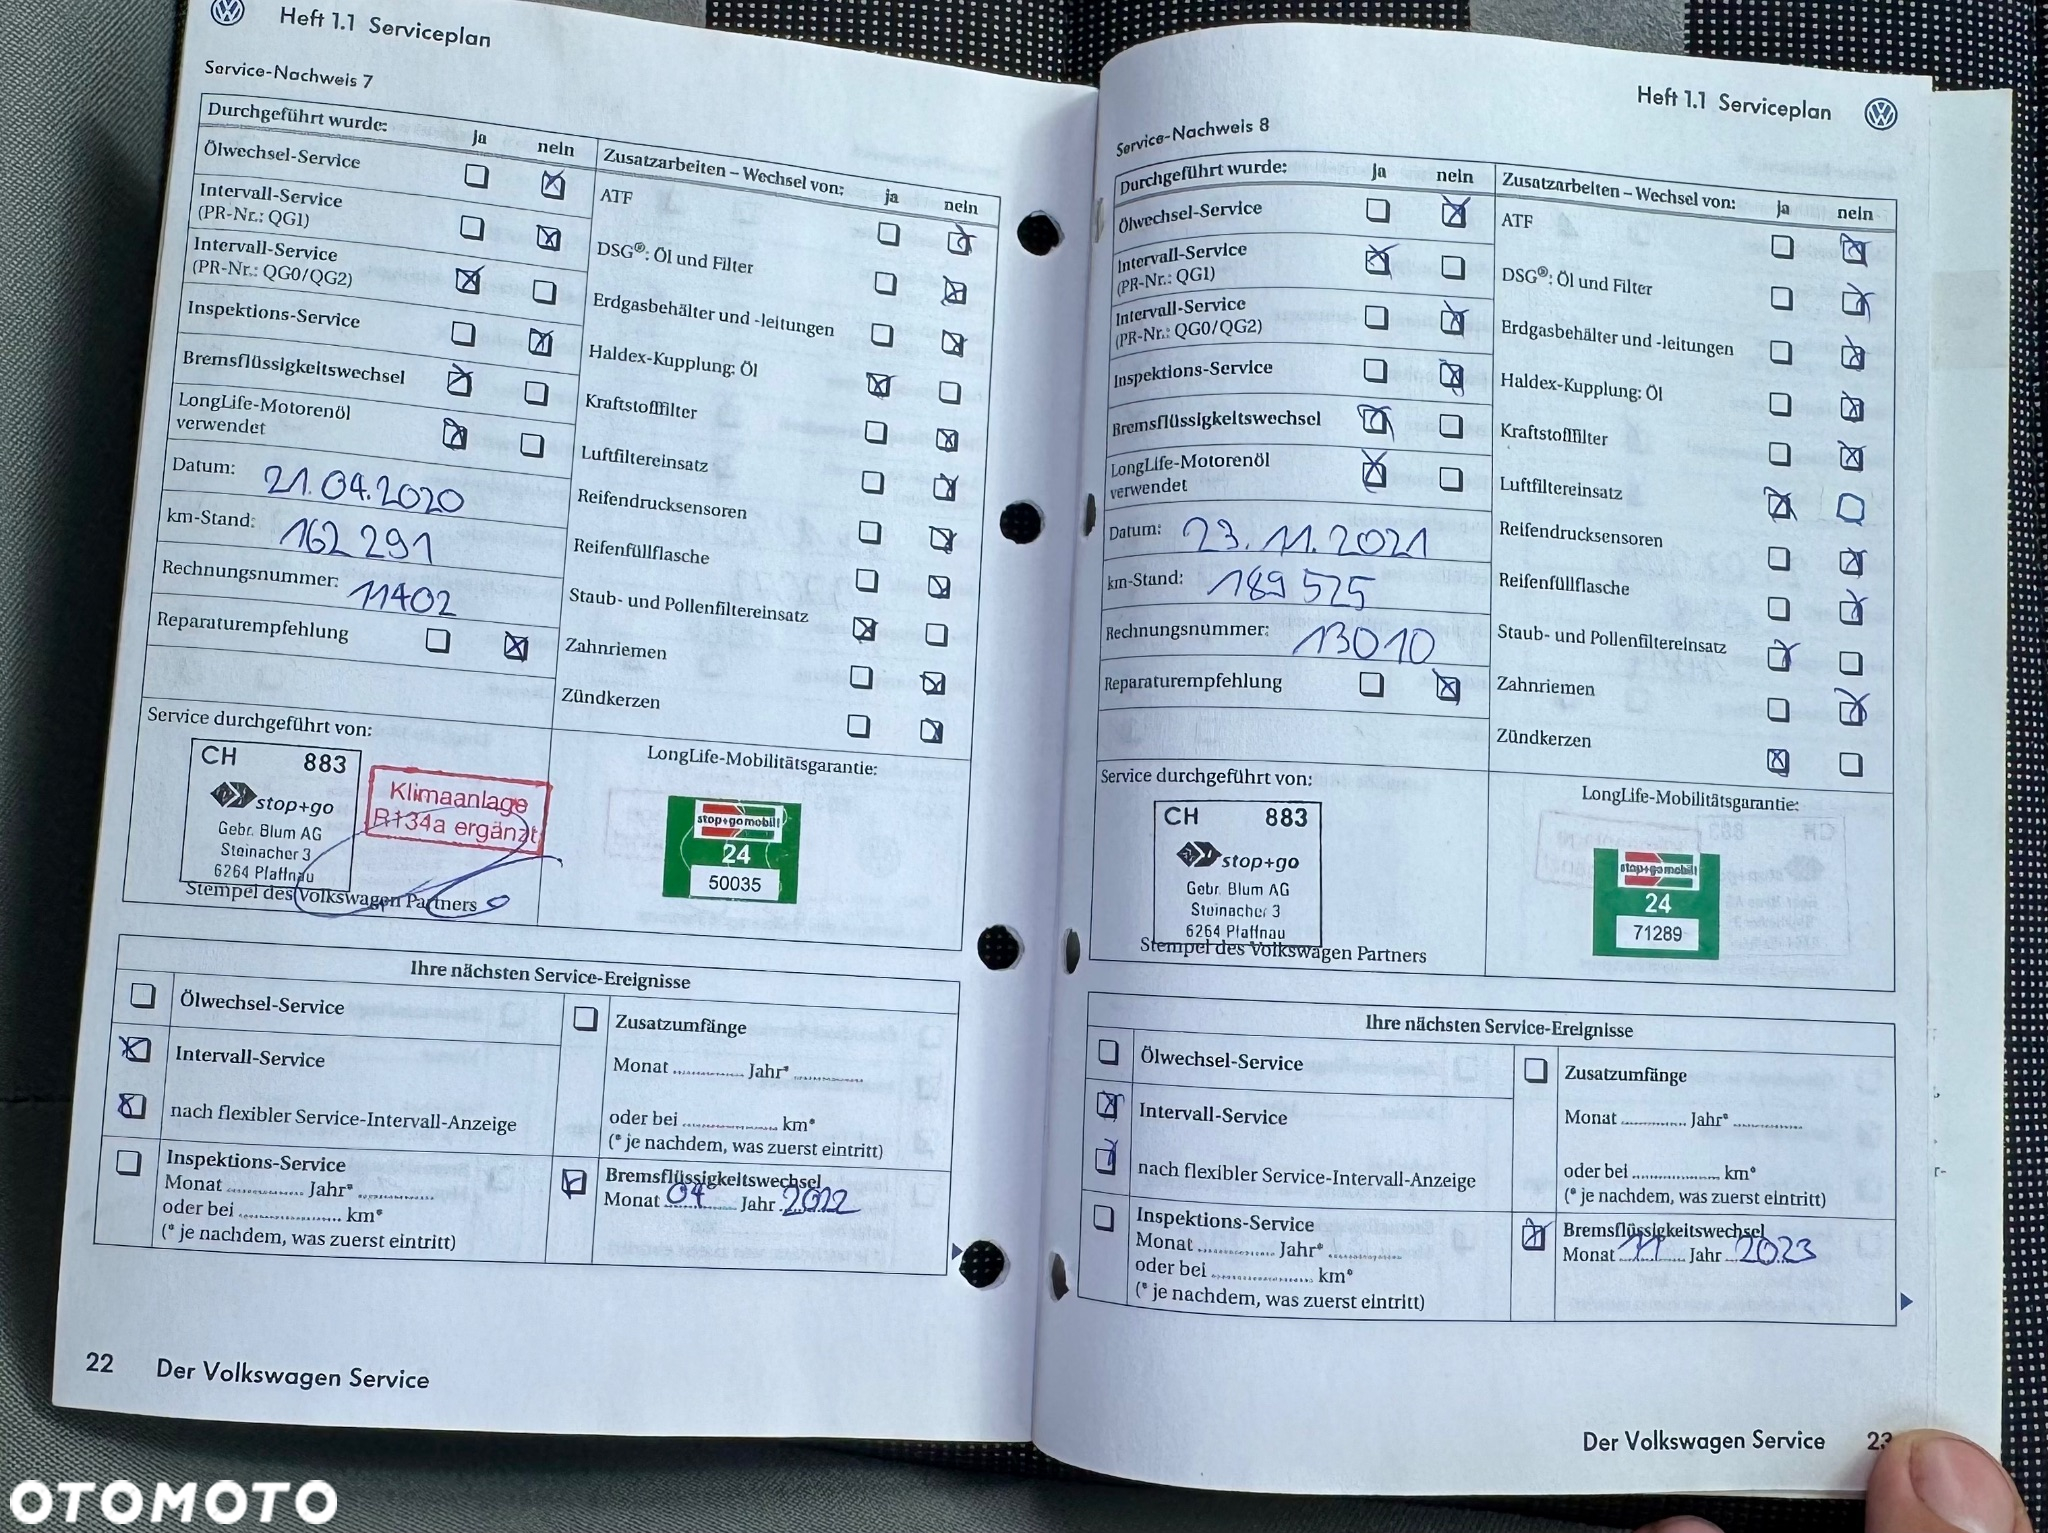 Heft 1.1 Serviceplan
Service-Nachweis 7
Durchgeführt wurde: ja nein
Ölwechsel-Service
Intervall-Service
(PR-Nr.: QG1)
Intervall-Service
(PR-Nr.: QG0/QG2)
Inspektions-Service
Bremsflüssigkeitswechsel
LongLife-Motorenöl
verwendet
Datum: 21.04.2020
km-Stand: 162 291
Rechnungsnummer: 11402
Reparaturempfehlung
Zusatzarbeiten – Wechsel von: ja nein
ATF
DSG®: Öl und Filter
Erdgasbehälter und -leitungen
Haldex-Kupplung: Öl
Kraftstofffilter
Luftfiltereinsatz
Reifendrucksensoren
Reifenfüllflasche
Staub- und Pollenfiltereinsatz
Zahnriemen
Zündkerzen
Service durchgeführt von:
CH 883
stop+go
Gebr. Blum AG
Steinacher 3
6264 Pfaffnau
Stempel des Volkswagen Partners
Klimaanlage
R134a ergänzt
LongLife-Mobilitätsgarantie:
stop+go mobil
24
50035
Ihre nächsten Service-Ereignisse
Ölwechsel-Service
Intervall-Service
nach flexibler Service-Intervall-Anzeige
Inspektions-Service
Monat ............ Jahr* ............
oder bei ............ km*
(* je nachdem, was zuerst eintritt)
Zusatzumfänge
Monat ............ Jahr* ............
oder bei ............ km*
(* je nachdem, was zuerst eintritt)
Bremsflüssigkeitswechsel
Monat 04 Jahr 2022
22 Der Volkswagen Service
Heft 1.1 Serviceplan
Service-Nachweis 8
Durchgeführt wurde: ja nein
Ölwechsel-Service
Intervall-Service
(PR-Nr.: QG1)
Intervall-Service
(PR-Nr.: QG0/QG2)
Inspektions-Service
Bremsflüssigkeitswechsel
LongLife-Motorenöl
verwendet
Datum: 23.11.2021
km-Stand: 189 525
Rechnungsnummer: 13010
Reparaturempfehlung
Zusatzarbeiten – Wechsel von: ja nein
ATF
DSG®: Öl und Filter
Erdgasbehälter und -leitungen
Haldex-Kupplung: Öl
Kraftstofffilter
Luftfiltereinsatz
Reifendrucksensoren
Reifenfüllflasche
Staub- und Pollenfiltereinsatz
Zahnriemen
Zündkerzen
Service durchgeführt von:
CH 883
stop+go
Gebr. Blum AG
Steinacher 3
6264 Pfaffnau
Stempel des Volkswagen Partners
LongLife-Mobilitätsgarantie:
stop+go mobil
24
71289
Ihre nächsten Service-Ereignisse
Ölwechsel-Service
Intervall-Service
nach flexibler Service-Intervall-Anzeige
Inspektions-Service
Monat ............ Jahr* ............
oder bei ............ km*
(* je nachdem, was zuerst eintritt)
Zusatzumfänge
Monat ............ Jahr* ............
oder bei ............ km*
(* je nachdem, was zuerst eintritt)
Bremsflüssigkeitswechsel
Monat 11 Jahr 2023
Der Volkswagen Service 23
OTOMOTO